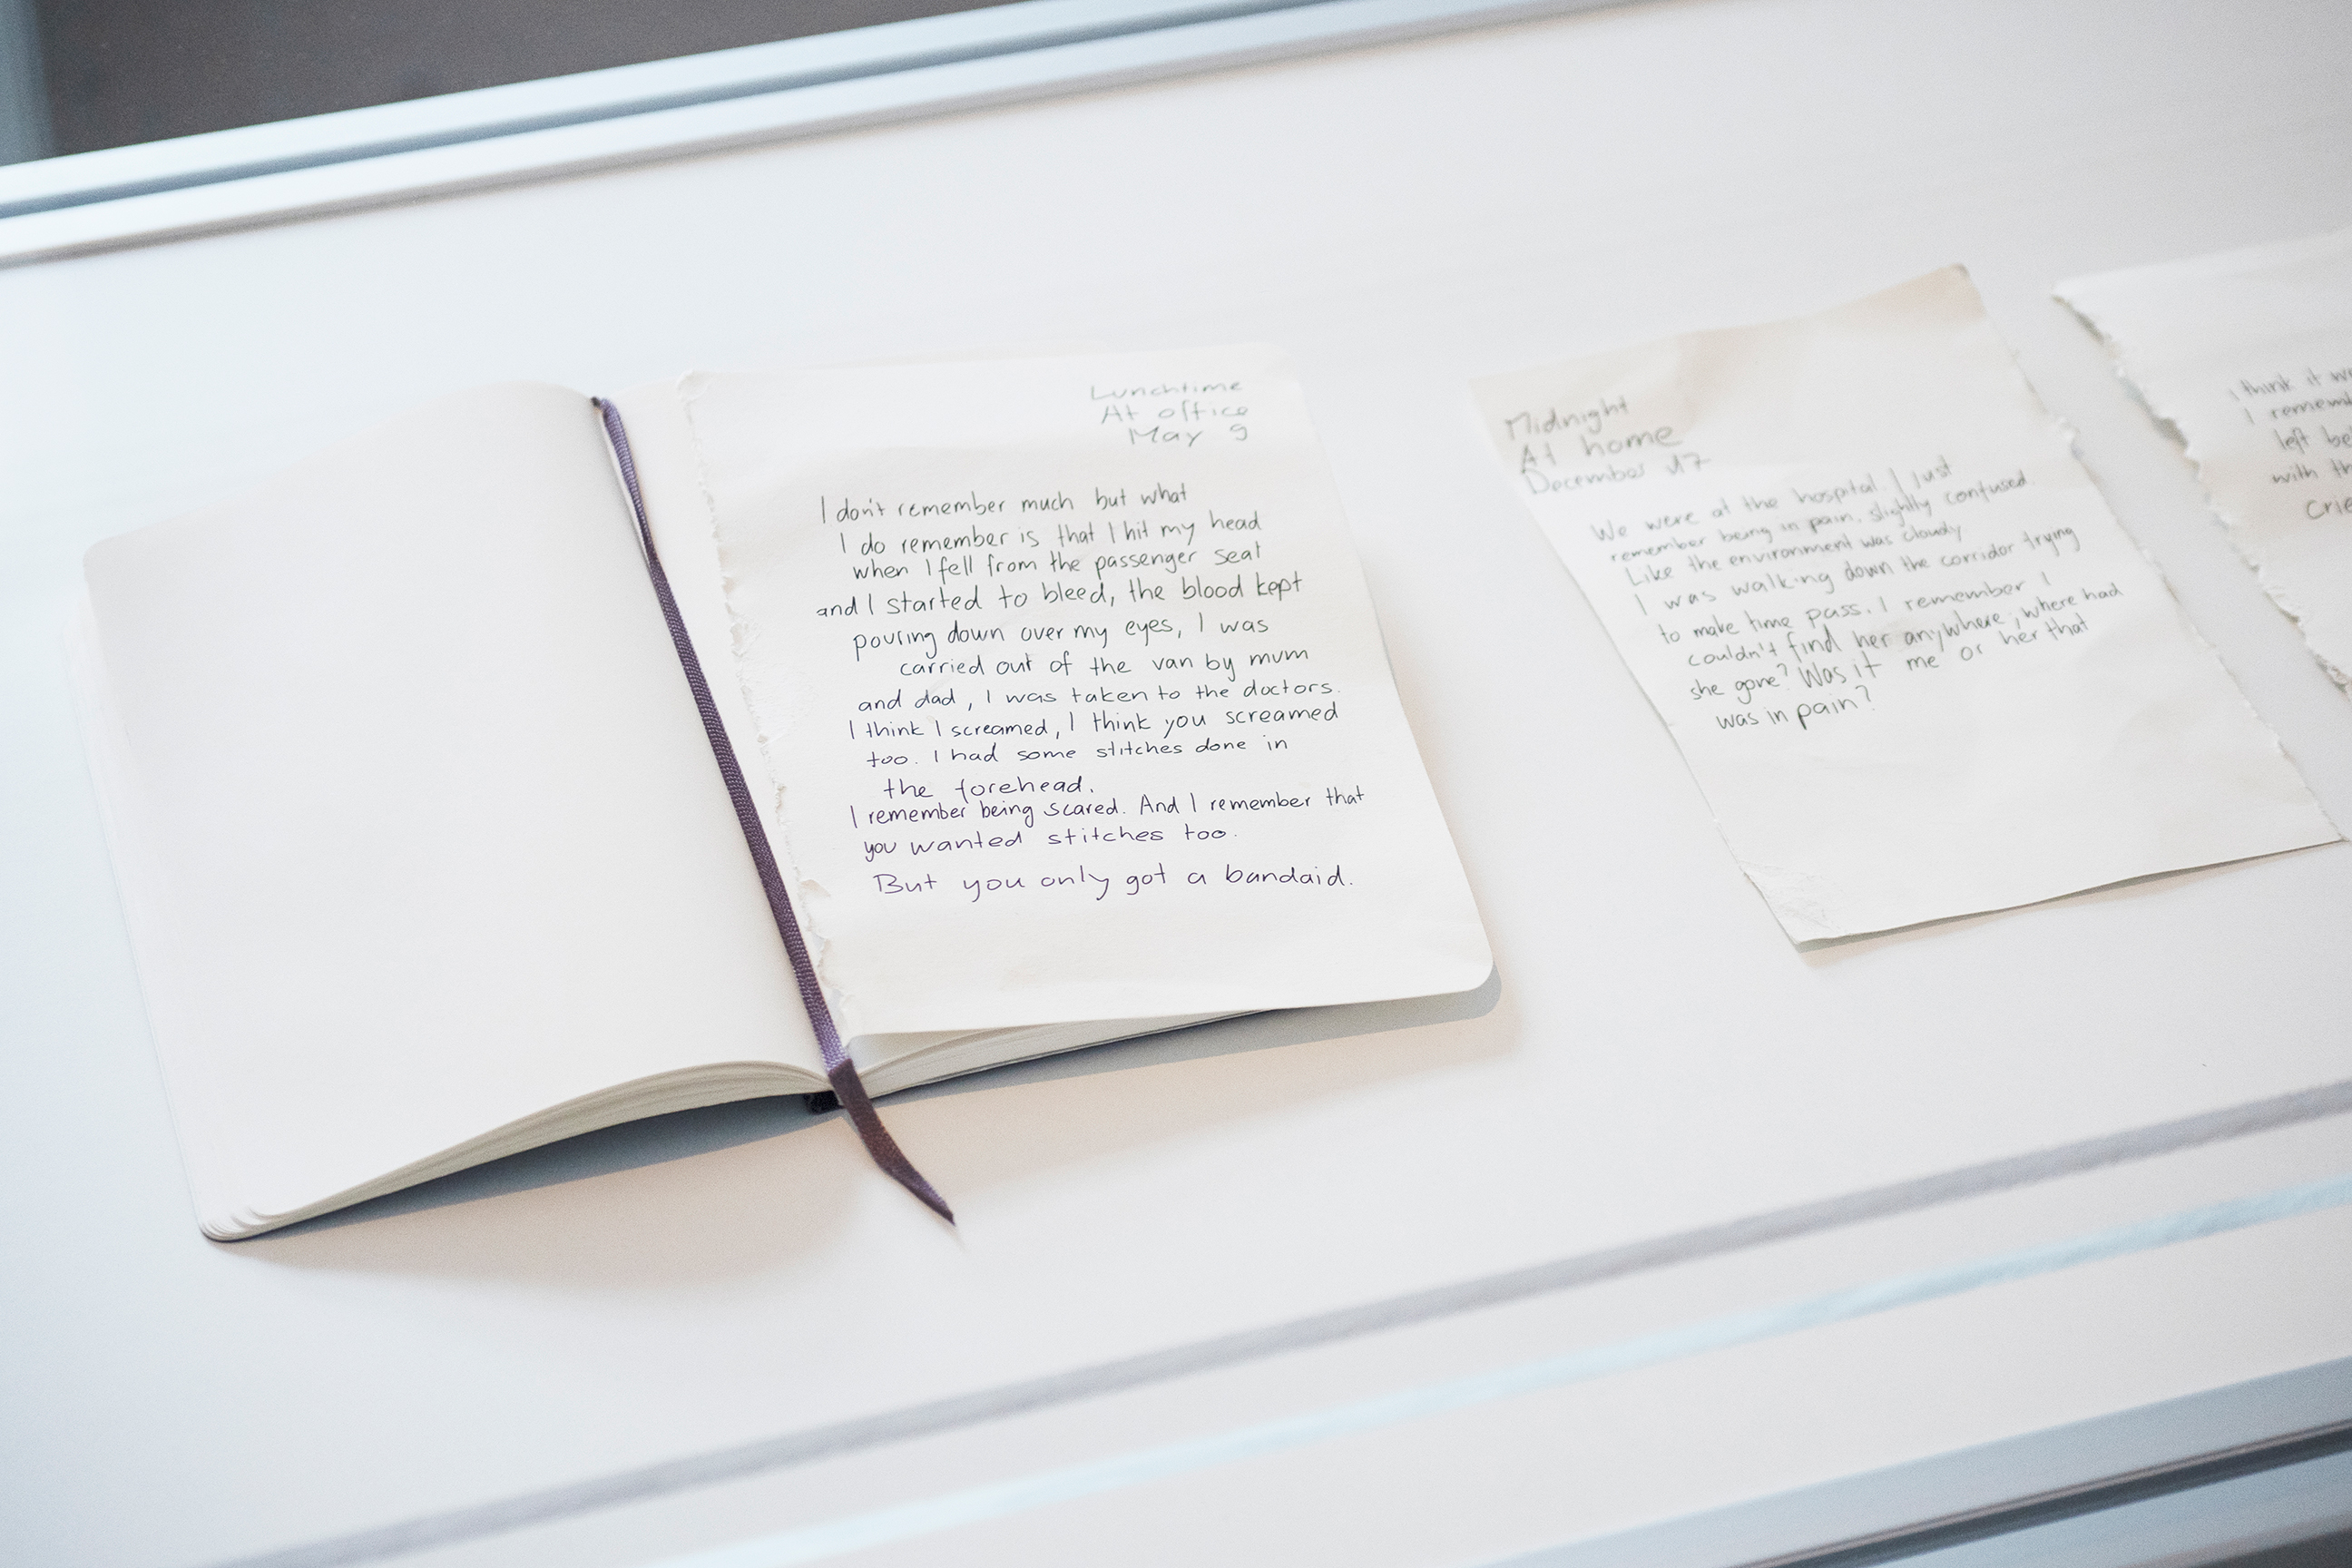 Lunchtime
At office
May 9
I don't remember much but what
I do remember is that I hit my head
when I fell from the passenger seat
and I started to bleed, the blood kept
pouring down over my eyes, I was
carried out of the van by mum
and dad, I was taken to the doctors.
I think I screamed, I think you screamed
too. I had some stitches done in
the forehead.
I remember being scared. And I remember that
you wanted stitches too.
But you only got a bandaid.
Midnight
At home
December 17
We were at the hospital. I just
remember being in pain, slightly confused.
Like the environment was cloudy
I was walking down the corridor trying
to make time pass. I remember I
couldn't find her anywhere, where had
she gone? Was it me or her that
was in pain?
I think it
I
left
with